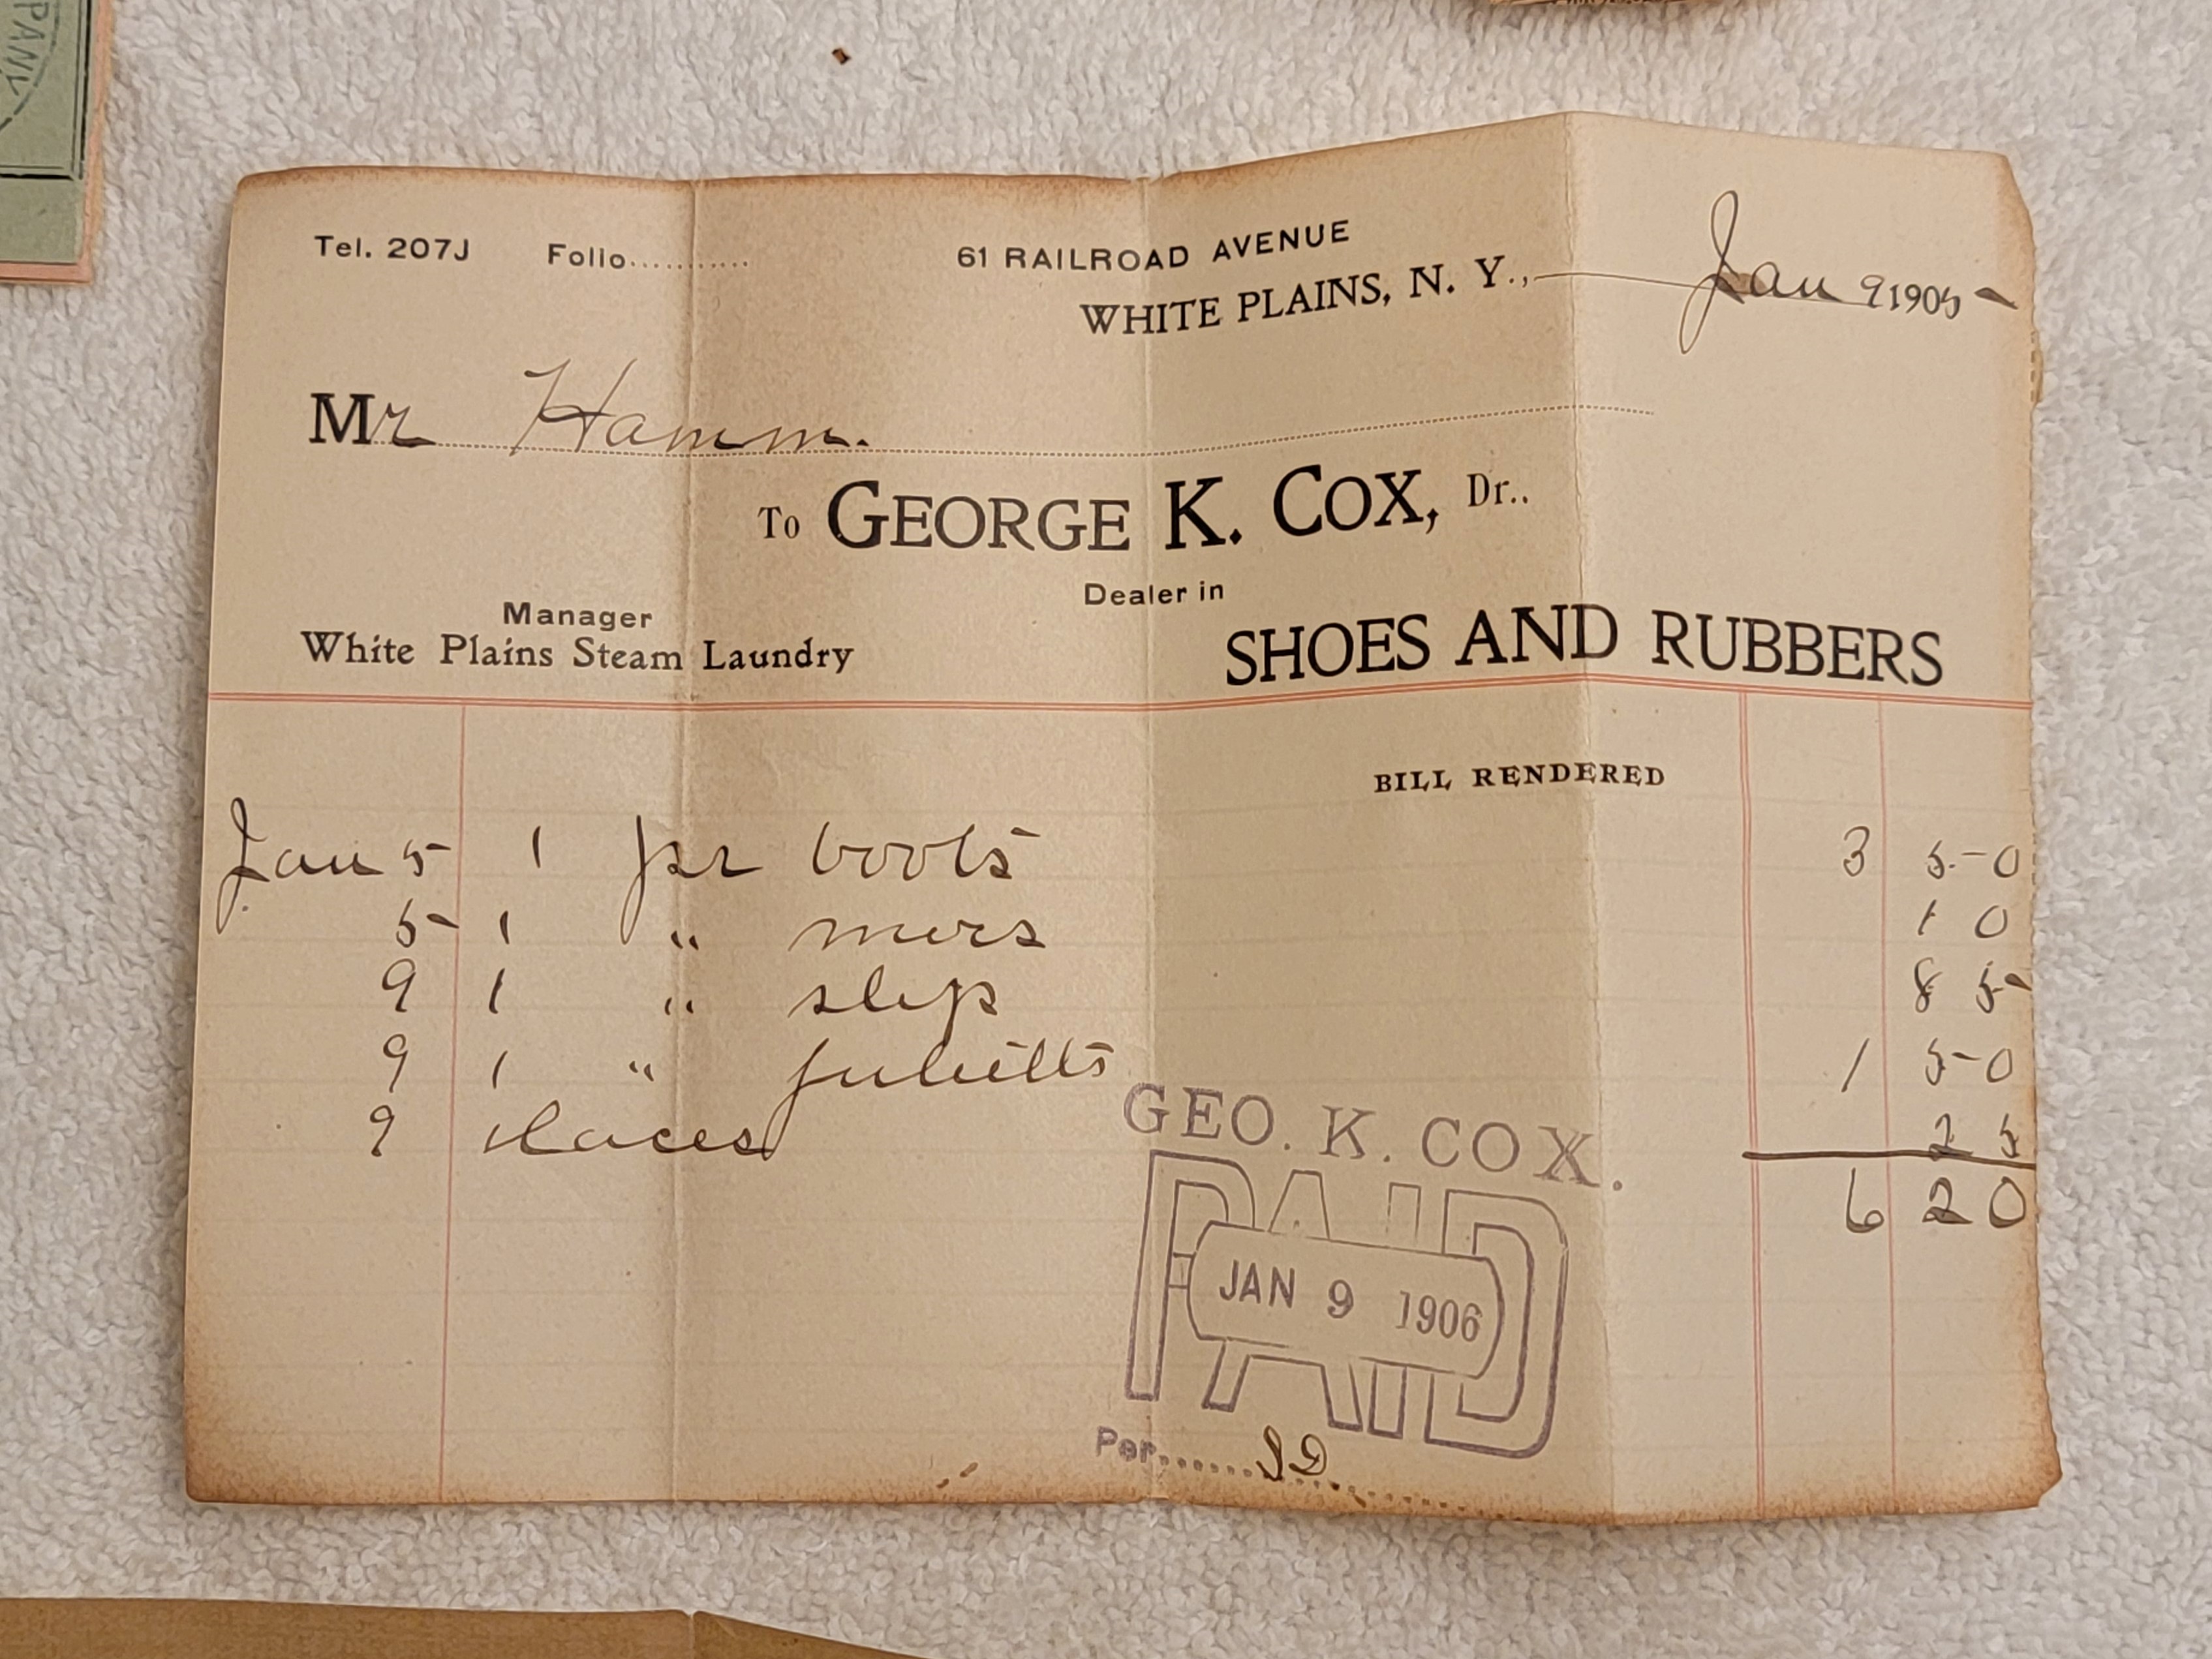 PANY
Tel. 207J Folio...........
61 RAILROAD AVENUE
WHITE PLAINS, N. Y., Jan 9 1905
Mr Hamm.
To GEORGE K. COX, Dr..
Dealer in
Manager
White Plains Steam Laundry
SHOES AND RUBBERS
BILL RENDERED
Jan 5 1 pr boots 3 50
5 1 " 10
9 1 " slip 85
9 1 " julietts 1 50
9 laces 25
6 20
GEO. K. COX.
PAID
JAN 9 1906
Per